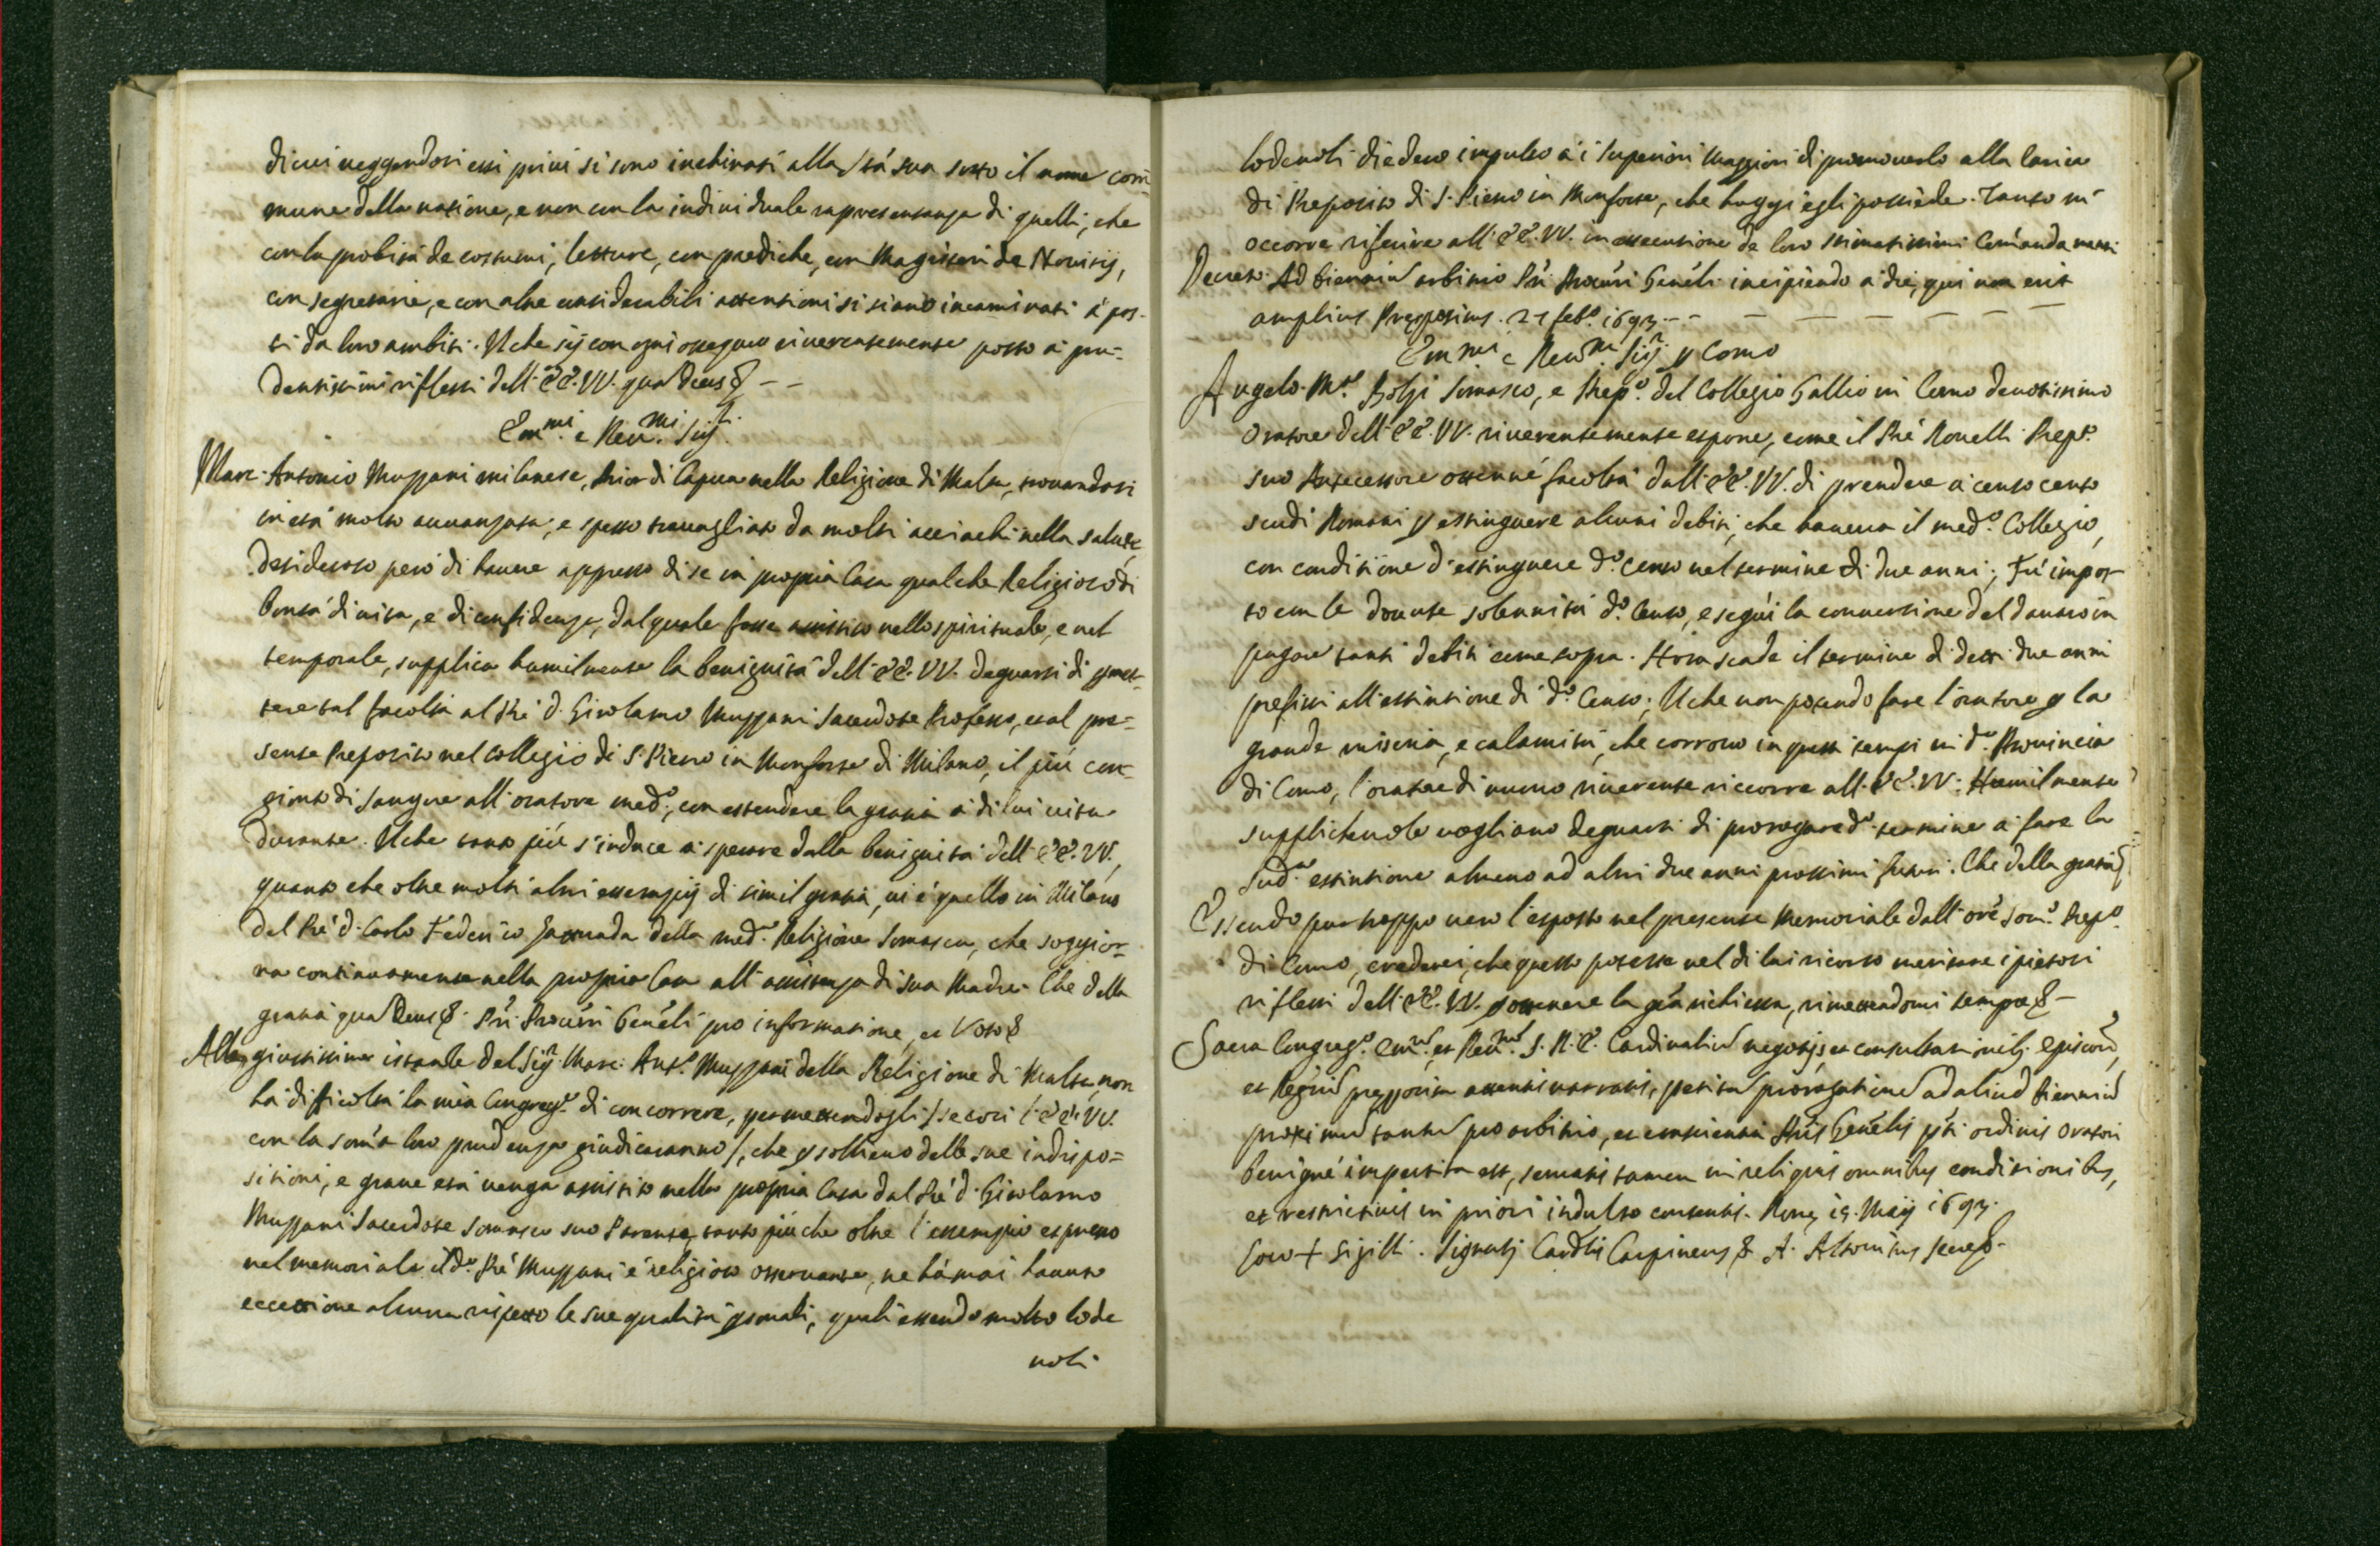 di cui veggendosi essi privi si sono inchinati alla Stà sua sotto il nome com̄
mune della natione, e non con la individuale rapresentanza di quelli, che
con la probità de costumi, letture, con prediche, con Magisteri de Novitij,
con segretarie, e con altre considerabili attentioni si siano incaminati à pos-
ti da loro ambiti. Il che sij con ogni ossequio riverentemente posto à pru=
dentissimi riflessi dell' EE. VV. qua Deus &
Em.mi e Rev.mi Sig.ri
Marc' Antonio Muzzani milanese, Prior di Capua nella Religione di Malta, trovandosi
in età molto avvanzata, e spesso travagliato da molti acciachi nella salute,
desideroso però di havere appresso di se in propria Casa qualche Religioso di
bontà di vita, e di confidenza, dal quale fosse assistito nello spirituale, e nel
temporale, supplica humilmente la benignità dell' EE. VV. degnarsi di ꝑmet-
tere tal facoltà al Prē D. Girolamo Muzzani Sacerdote Professo, et al pre=
sente Preposito nel Collegio di S. Pietro in Monforte di Milano, il più con=
gionto di sangue all' oratore med.o, con estendere la gratia à di lui vita
durante. Il che tanto più s'induce a sperare dalla benignità dell' EE. VV.,
quanto che oltre molti altri essempij di simil gratia, vi è quello in Milano
del Prē D. Carlo Federico della med.a Religione Somasca, che soggior-
na continuamente nella propria Casa all' assistenza di sua Madre. Che della
gratia qua Deus &. Pri Procūri Genēli pro informatione, et Voto &
Alla giustissima istanza del Sig.r Marc' Ant.o Muzzani della Religione di Malta, non
hà difficoltà la mia Congreg.e di concorrere, permettendogli /se così l' EE. VV.
con la som̄a loro prudenza giudicaranno/, che ꝑ sollievo delle sue indispo=
sitioni, e grave età venga assistito nella propria Casa dal Prē D. Girolamo
Muzzani Sacerdote Somasco suo Parente, tanto più che oltre l'essempio espresso
nel memoriale il d.o Prē Muzzani è religioso osservante, ne hà mai havuto
eccettione alcuna rispetto le sue qualità ꝑsonali, quali essendo molto lode
voli
lodevoli diedero impulso à i Superiori Maggiori di promoverlo alla carica
di Preposito di S. Pietro in Monforte, che hoggi egli possiede. Tanto m'
occorre riferire all' EE. VV. in essecutione de loro stimatissimi Com̄andamenti.
Decreto. Ad biennium arbitrio Pri Procūri Genēli incipiendo a die, qui non erit
amplius Prępositus. 27 feb.o 1693.
Em.mi e Rev.mi Sig.ri ꝑ Como
Angelo M.a Bolzi Somasco, e Prep.o del Collegio Gallio in Como devotissimo
Oratore dell' EE. VV. riverentemente espone, come il Prē Novelli Prep.to
suo Antecessore ottenne facoltà dall' EE. VV. di prendere à censo cento
scudi Romani ꝑ estinguere alcuni debiti, che haveva il med.o Collegio,
con conditione d'estinguere d.o Censo nel termine di due anni; Fù impos-
to con le dovute solennità d.o Censo, e seguì la conversione del danaro in
pagare tanti debiti come sopra. Hora scade il termine di detti due anni
prefissi all' estintione di d.o Censo; Il che non potendo fare l'oratore ꝑ la
grande miseria, e calamità, che corrono in questi tempi in d.a Provincia
di Como, l'oratore di nuovo riverente riccorre all' EE. VV. Humilmente
supplichevole vogliano degnarsi di prorogare d.o termine à fare la
sud.a estintione almeno ad altri due anni prossimi futuri. Che della gratia &
Essendo pur troppo vero l'esposto nel presente Memoriale dall' orē Som.o Prep.o
di Como, crederei, che questo potesse nel di lui ricorso meritare i pietosi
riflessi dell' EE. VV. ottenere la grā richiesta, rimettendomi sempre &
Sacra Congreg.o Em.rum et Rev.rum S. R. E. Cardinalium negotijs, et consultationib; Episcor̄,
et Regūm pręposita attentis narratis, petitam prorogationem ad aliud Biennium
proximum tantum pro arbitrio, et conscientia Pris Genēlis pti ordinis Oratori
benignè impertita est, servatis tamen in reliquis omnibus conditionibus,
et restrictivis in priori indulto contentis. Romę 19. Maij 1693.
Loco + Sigilli. Signatū Cardlis Carpineus & A. Altovitus Secr.s